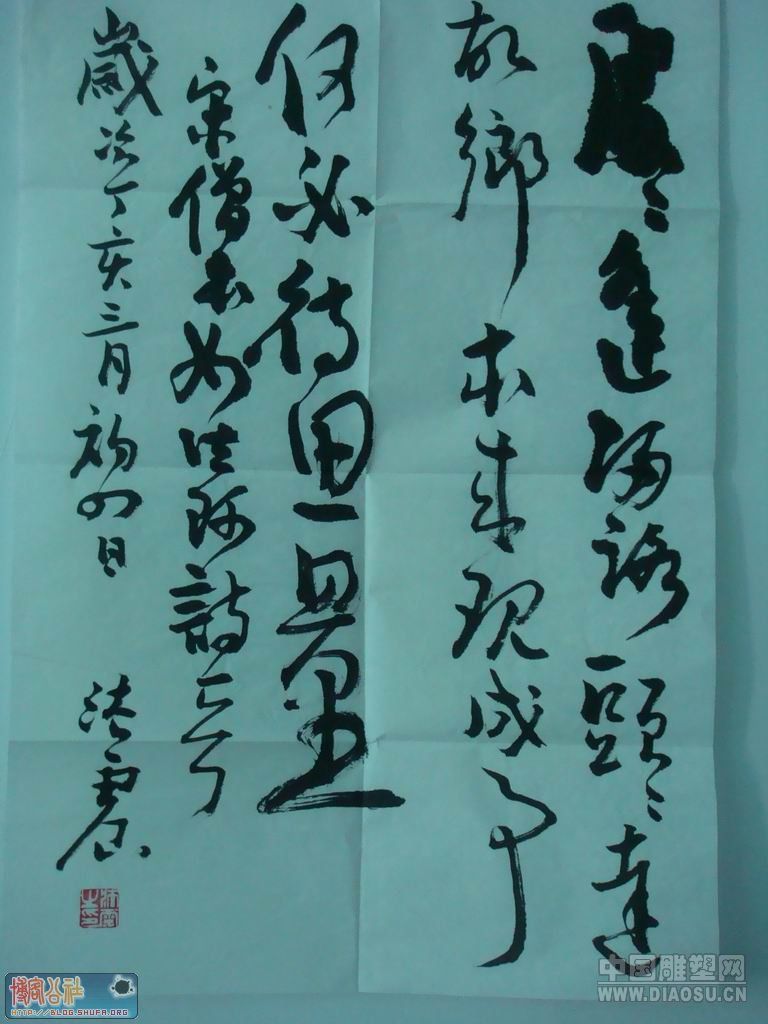 處々逢歸路頭々達
故鄉本來現成事
何必待思量
宋僧本如法師詩
歲次丁亥三月初四日 法
博客公社
HTTP://BLOG.SHUFA.ORG
中国雕塑网
WWW.DIAOSU.CN